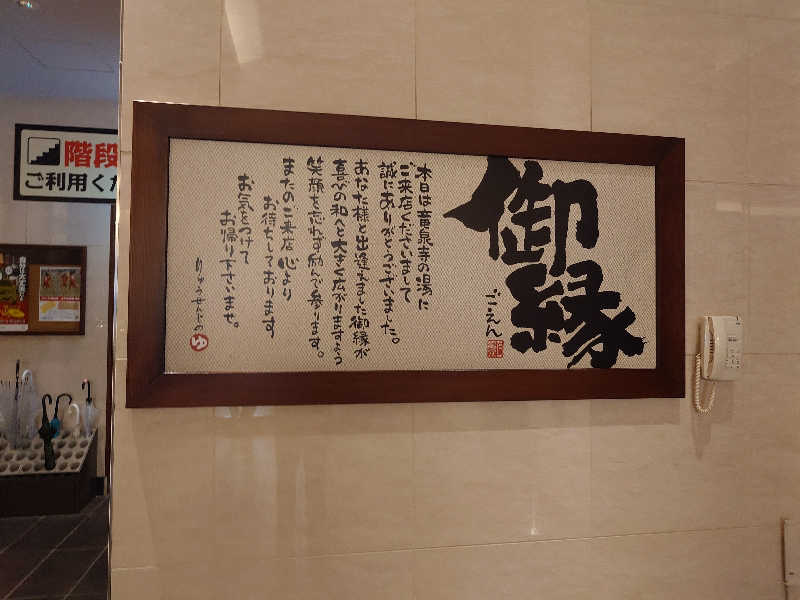 御縁
ごえん
本日は竜泉寺の湯に
ご来店くださいまして
誠にありがとうございました。
あなた様と出逢えました御縁が
喜びの和へと大きく広がりますよう
笑顔を忘れず励んで参ります。
またのご来店 心より
お待ちしております
お気をつけて
お帰り下さいませ。
りゅうせんじの
ゆ
階段
ご利用くだ